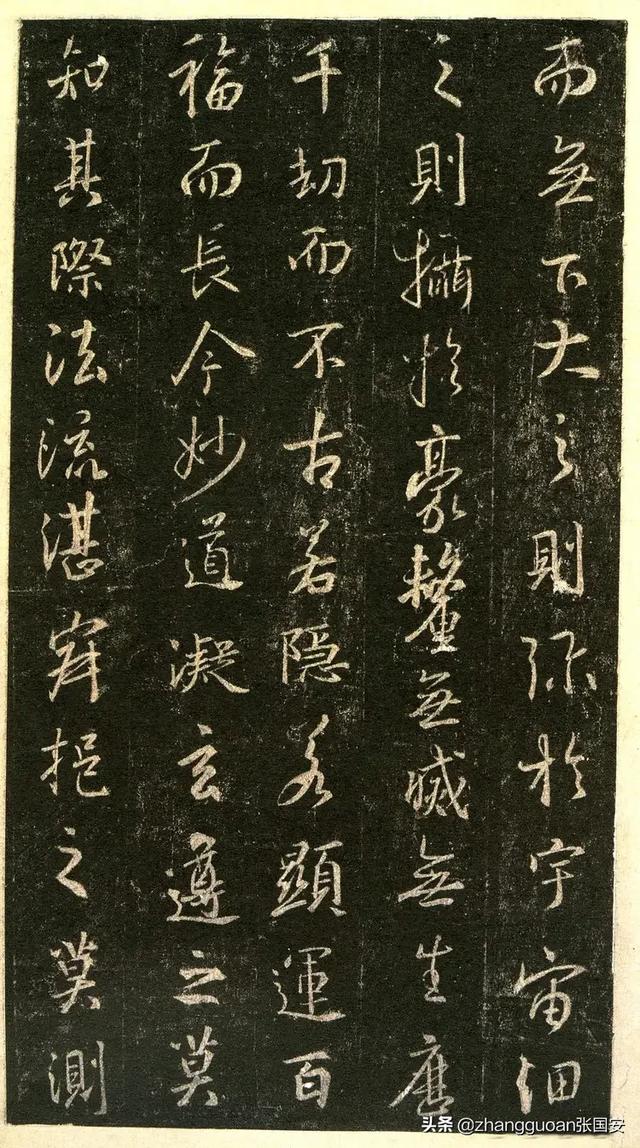 而無下大之則弥於宇宙細
之則攝於豪釐無滅無生歷
千劫而不古若隱若顯運百
福而長今妙道凝玄遵之莫
知其際法流湛寂挹之莫測
头条 @zhangguoan张国安